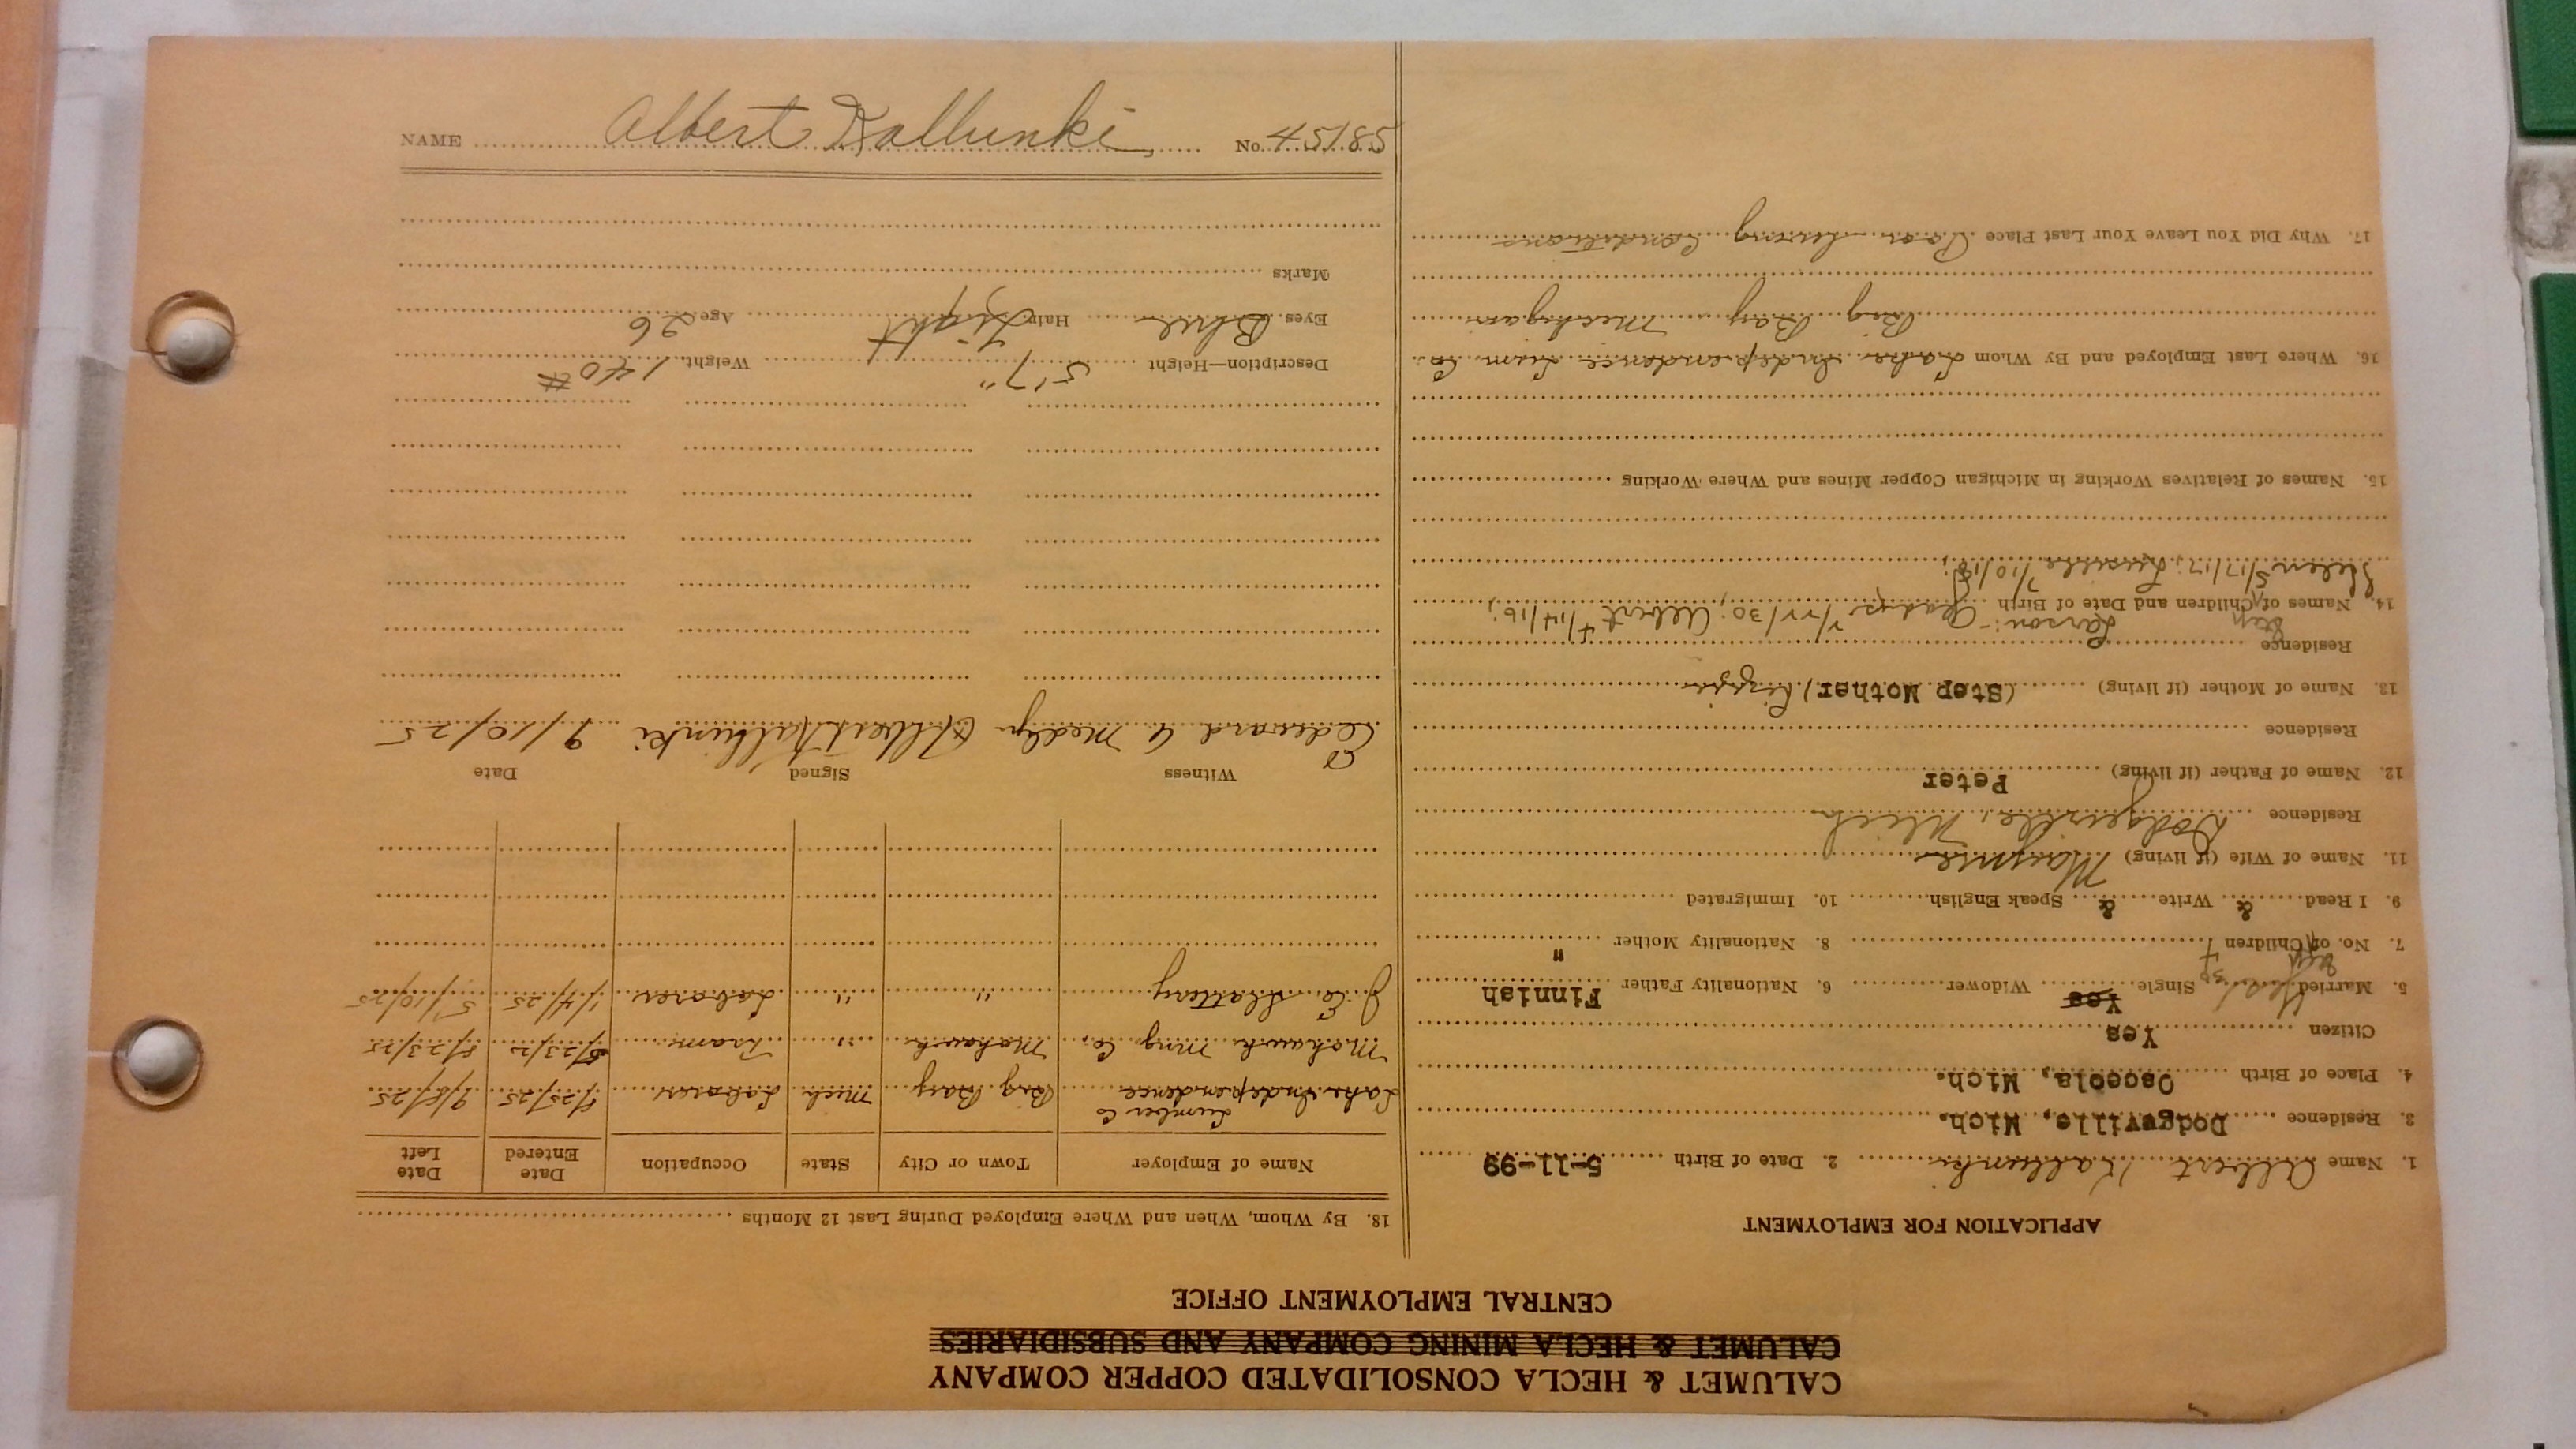 CALUMET & HECLA CONSOLIDATED COPPER COMPANY
CALUMET & HECLA MINING COMPANY AND SUBSIDIARIES
CENTRAL EMPLOYMENT OFFICE
APPLICATION FOR EMPLOYMENT
1. Name Albert Kallunki 2. Date of Birth 5-11-99
3. Residence Dodgeville, Mich.
4. Place of Birth Osceola, Mich.
Citizen Yes
5. Married Yes Single Yes Widower 6. Nationality Father Finnish
7. No. of Step Children 4 8. Nationality Mother "
9. I Read & Write & Speak English 10. Immigrated
11. Name of Wife (if living) Mayme
Residence Dodgeville, Mich
12. Name of Father (if living) Peter
Residence
13. Name of Mother (if living) (Step Mother) Lizzie
Residence
14. Names of Step Children and Date of Birth Larson:- Gladys Albert 4/14/16;
Helen 5/17/17; Lucille 7/10/18;
15. Names of Relatives Working in Michigan Copper Mines and Where Working
16. Where Last Employed and By Whom Lake Independence Lum Co.
Big Bay Michigan
17. Why Did You Leave Your Last Place Poor Living Conditions
18. By Whom, When and Where Employed During Last 12 Months
Name of Employer Town or City State Occupation Date Entered Date Left
Lake Independence Lumber Co Big Bay Mich Laborer 9/8/25
Mohawk Mng. Co. Mohawk " Tram
J. E. Slattery " " Laborer 1/4/25 5/10/25
Witness Signed Date
Edward C Medlyn Albert Kallunki 9/10/25
Description—Height 5'7" Weight 140 #
Eyes Blue Hair Light Age 26
Marks
NAME Albert Kallunki No. 45185